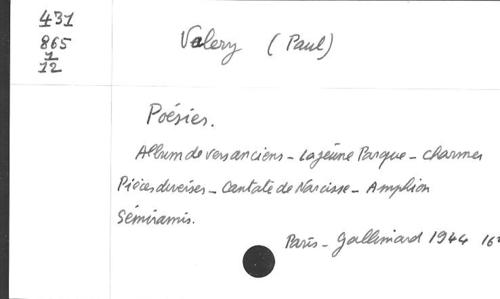 431
865
1
12
Valery (Paul)
Poésies.
Album de vers anciens - La jeune Parque - Charmes
Pièces diverses - Cantate de Narcisse - Amphion
Sémiramis.
Paris - Gallimard 1944 16